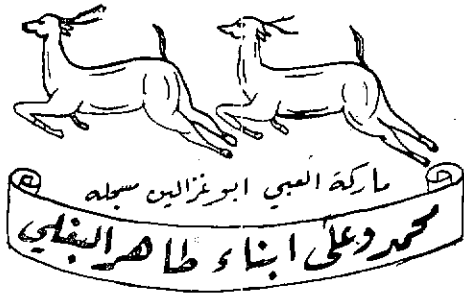 ماركة العبي ابو غزالين مسجله
محمد وعلى ابناء طاهر البغلي